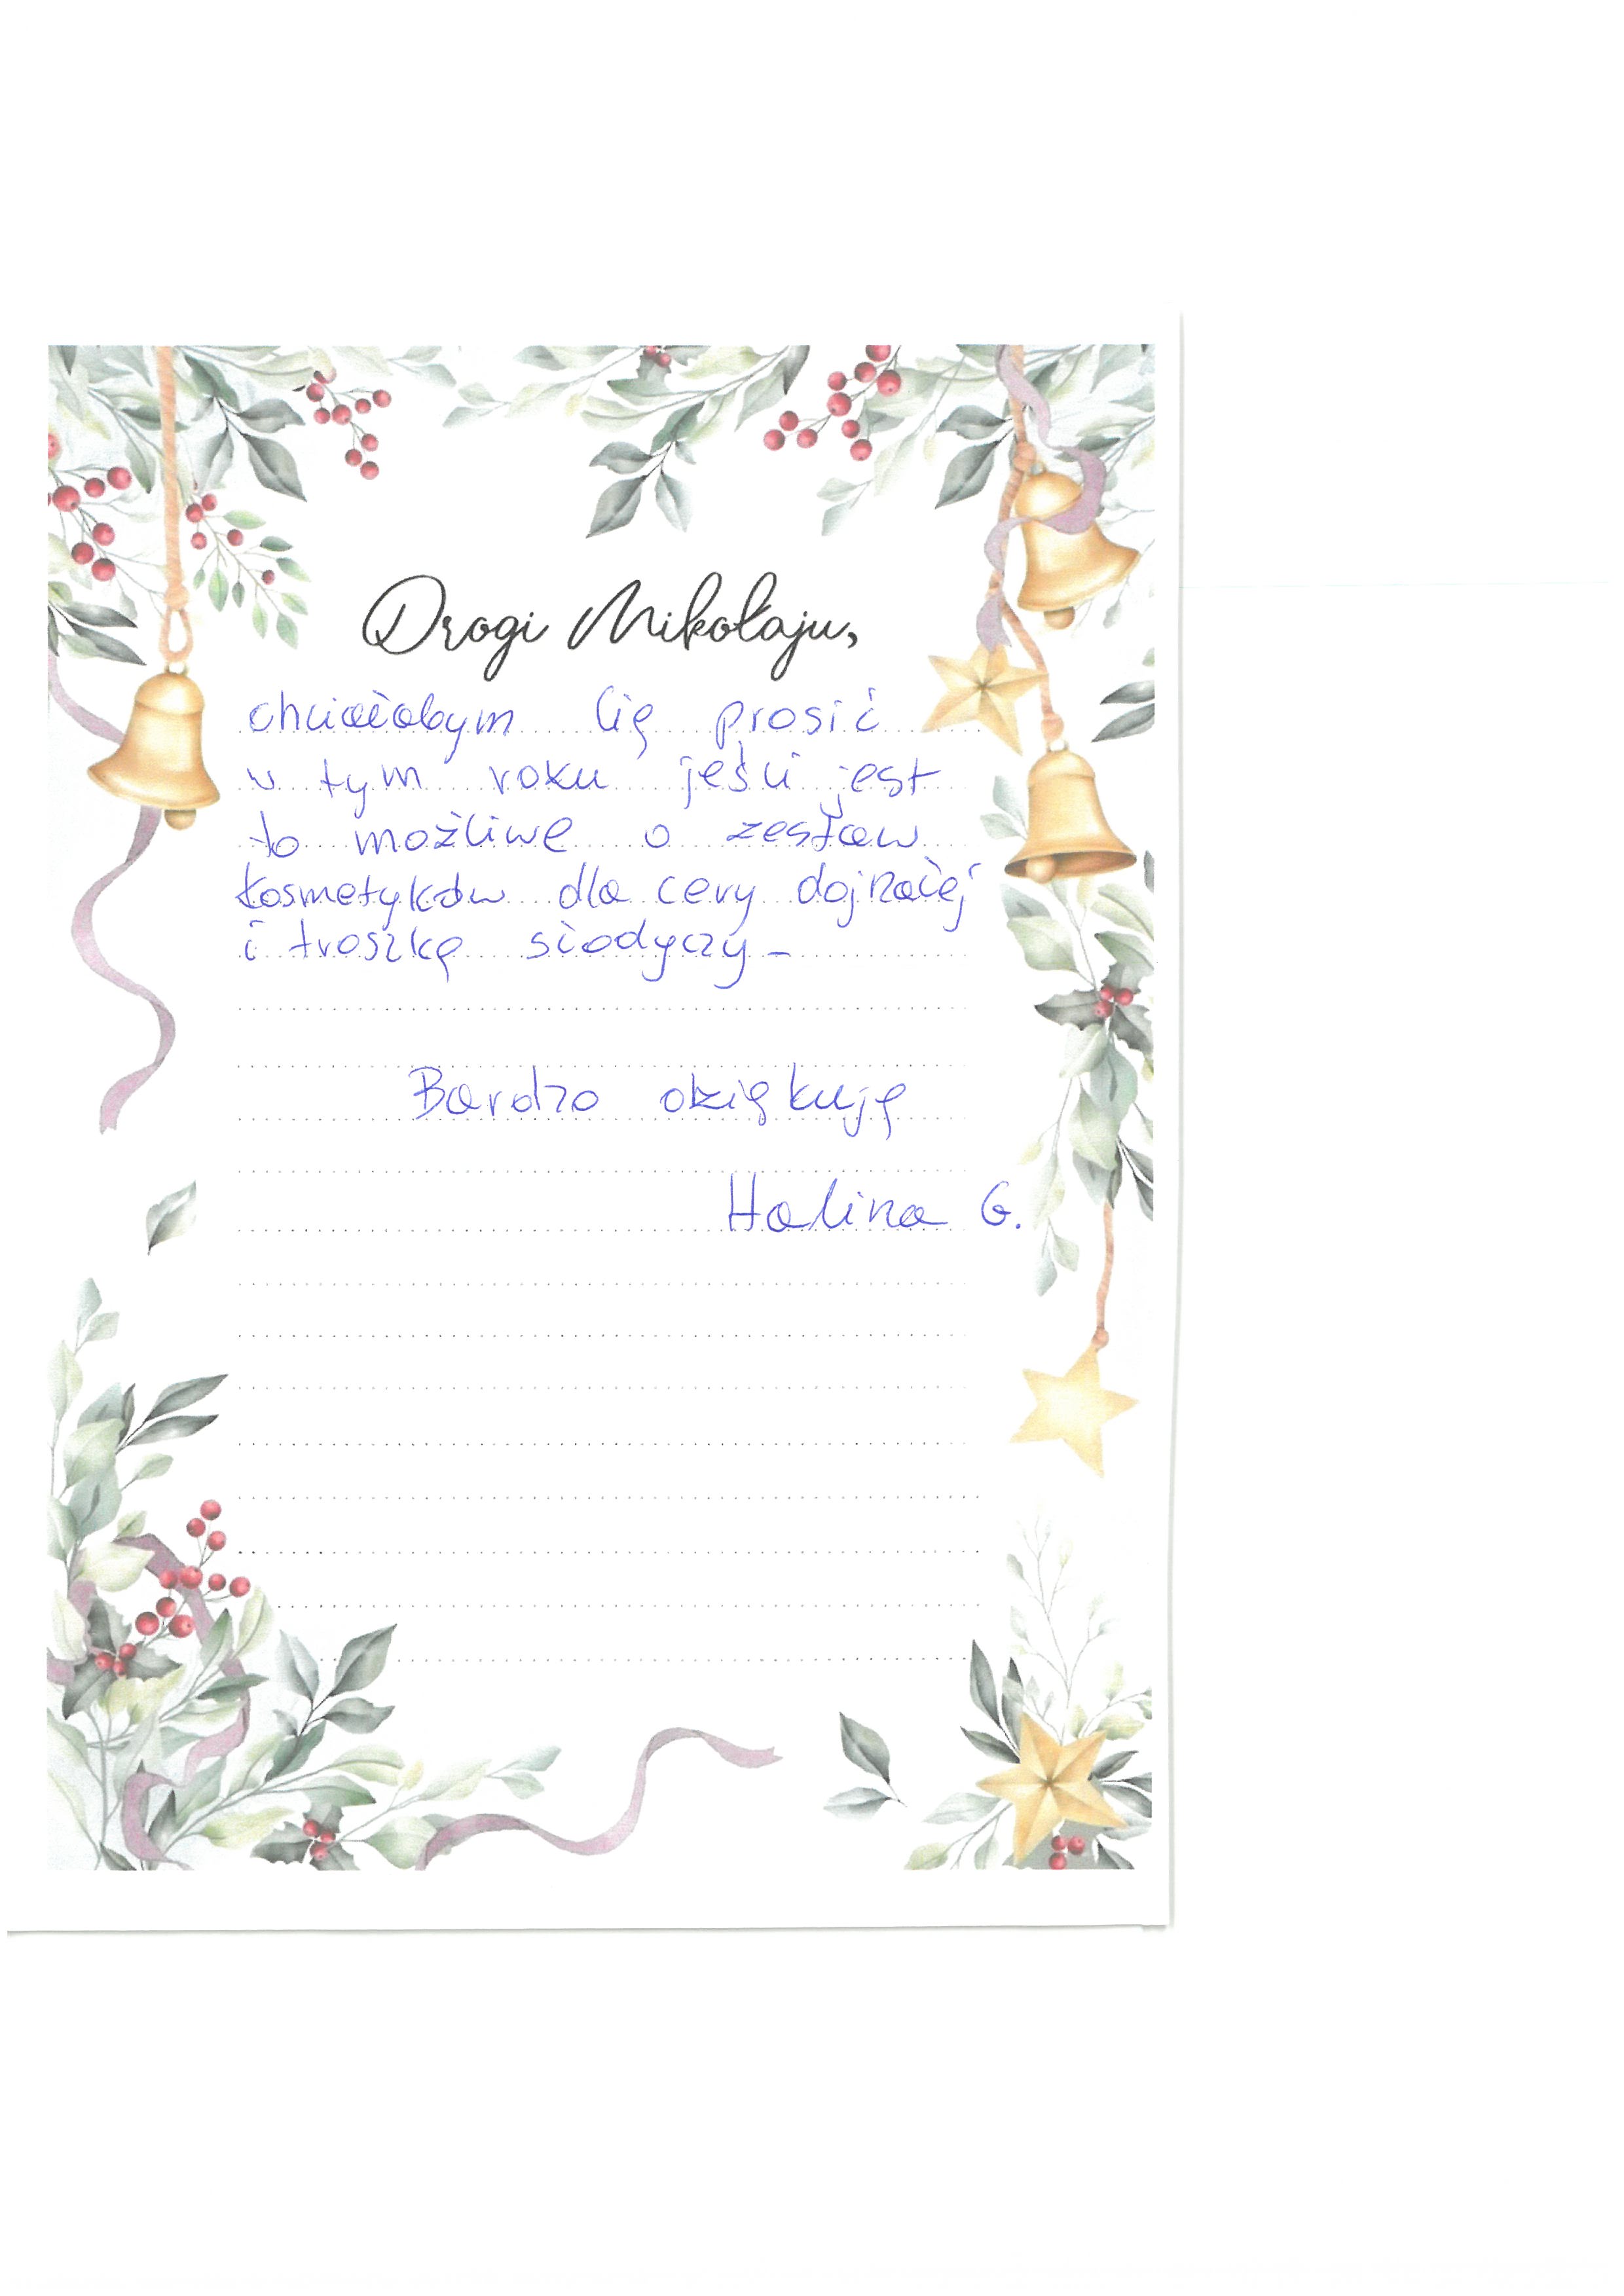 Drogi Mikołaju,
chciałabym Cię prosić
w tym roku jeśli jest
to możliwe o zestaw
kosmetyków dla cery dojrzałej
i troszkę słodyczy_
Bardzo dziękuję
Halina G.